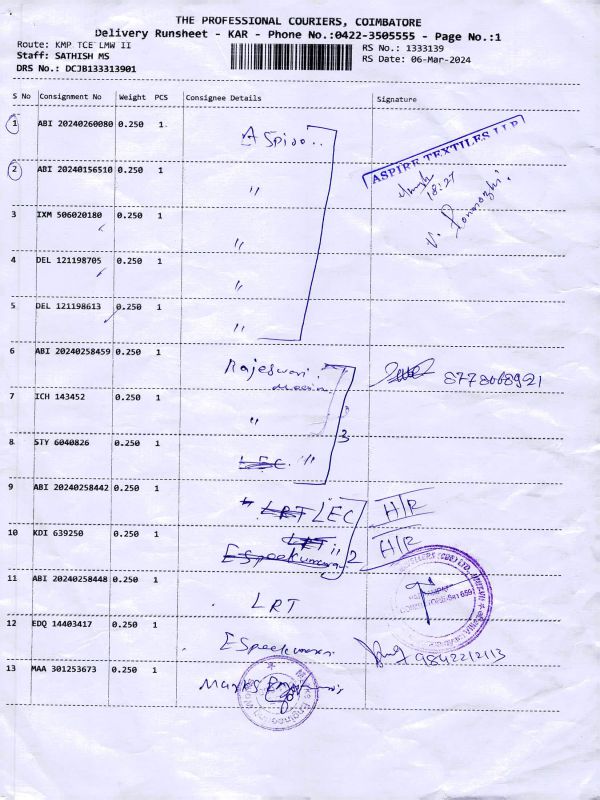 THE PROFESSIONAL COURIERS, COIMBATORE
Delivery Runsheet - KAR - Phone No.:0422-3505555 - Page No.:1
Route: KMP TCE LMW II
RS No.: 1333139
Staff: SATHISH MS
RS Date: 06-Mar-2024
DRS No.: DCJB133313901
S No Consignment No Weight PCS Consignee Details Signature
1 ABI 20240260080 0.250 1 Aspire..
ASPIRE TEXTILES LLP
2 ABI 20240156510 0.250 1 "
18:27
3 IXM 506020180 0.250 1 "
V. Ponmozhi.
4 DEL 121198705 0.250 1 "
5 DEL 121198613 0.250 1 "
6 ABI 20240258459 0.250 1 Rajeswari
7 ICH 143452 0.250 1 "
3
8 STY 6040826 0.250 1 LEC. "
9 ABI 20240258442 0.250 1 " LRT LEC H/R
10 KDI 639250 0.250 1 LRT " 2 H/R
11 ABI 20240258448 0.250 1 LRT
12 EDQ 14403417 0.250 1 9842212113
13 MAA 301253673 0.250 1